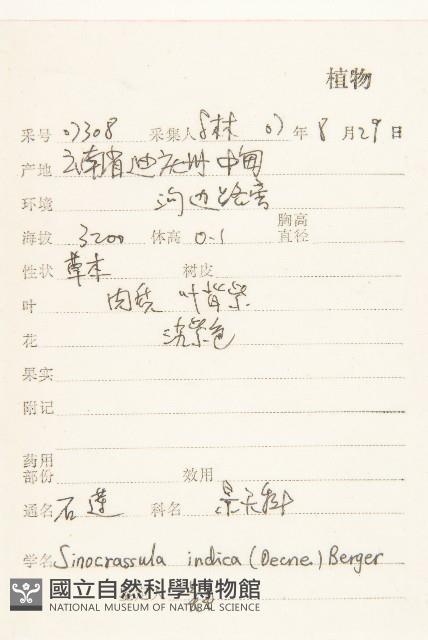 植物
采号 07308 采集人 林 07 年 8 月 29 日
产地 云南省迪庆州中甸
环境 沟边路旁
海拔 3200 体高 0.1 胸高直径
性状 草本 树皮
叶 肉质 叶背紫
花 紫色
果实
附记
药用部份 效用
通名 石莲 科名 景天科
学名 Sinocrassula indica (Decne.) Berger
國立自然科學博物館
NATIONAL MUSEUM OF NATURAL SCIENCE